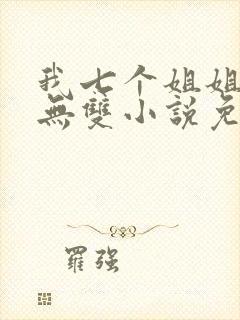 我七个姐姐
無雙小説免
羅强